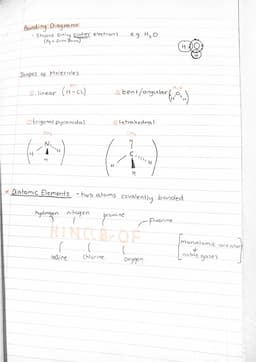 Bonding Diagrams
- Shows only outer electrons e.g H₂O
Shapes of Molecules
linear (H-Cl)
bent/angular
trigonal pyramidal
tetrahedral
N
H H
H
C
H
H
Diatomic Elements - two atoms covalently bonded
hydrogen nitrogen bromine fluorine
HINClBrOF
iodine chlorine oxygen
noble gases